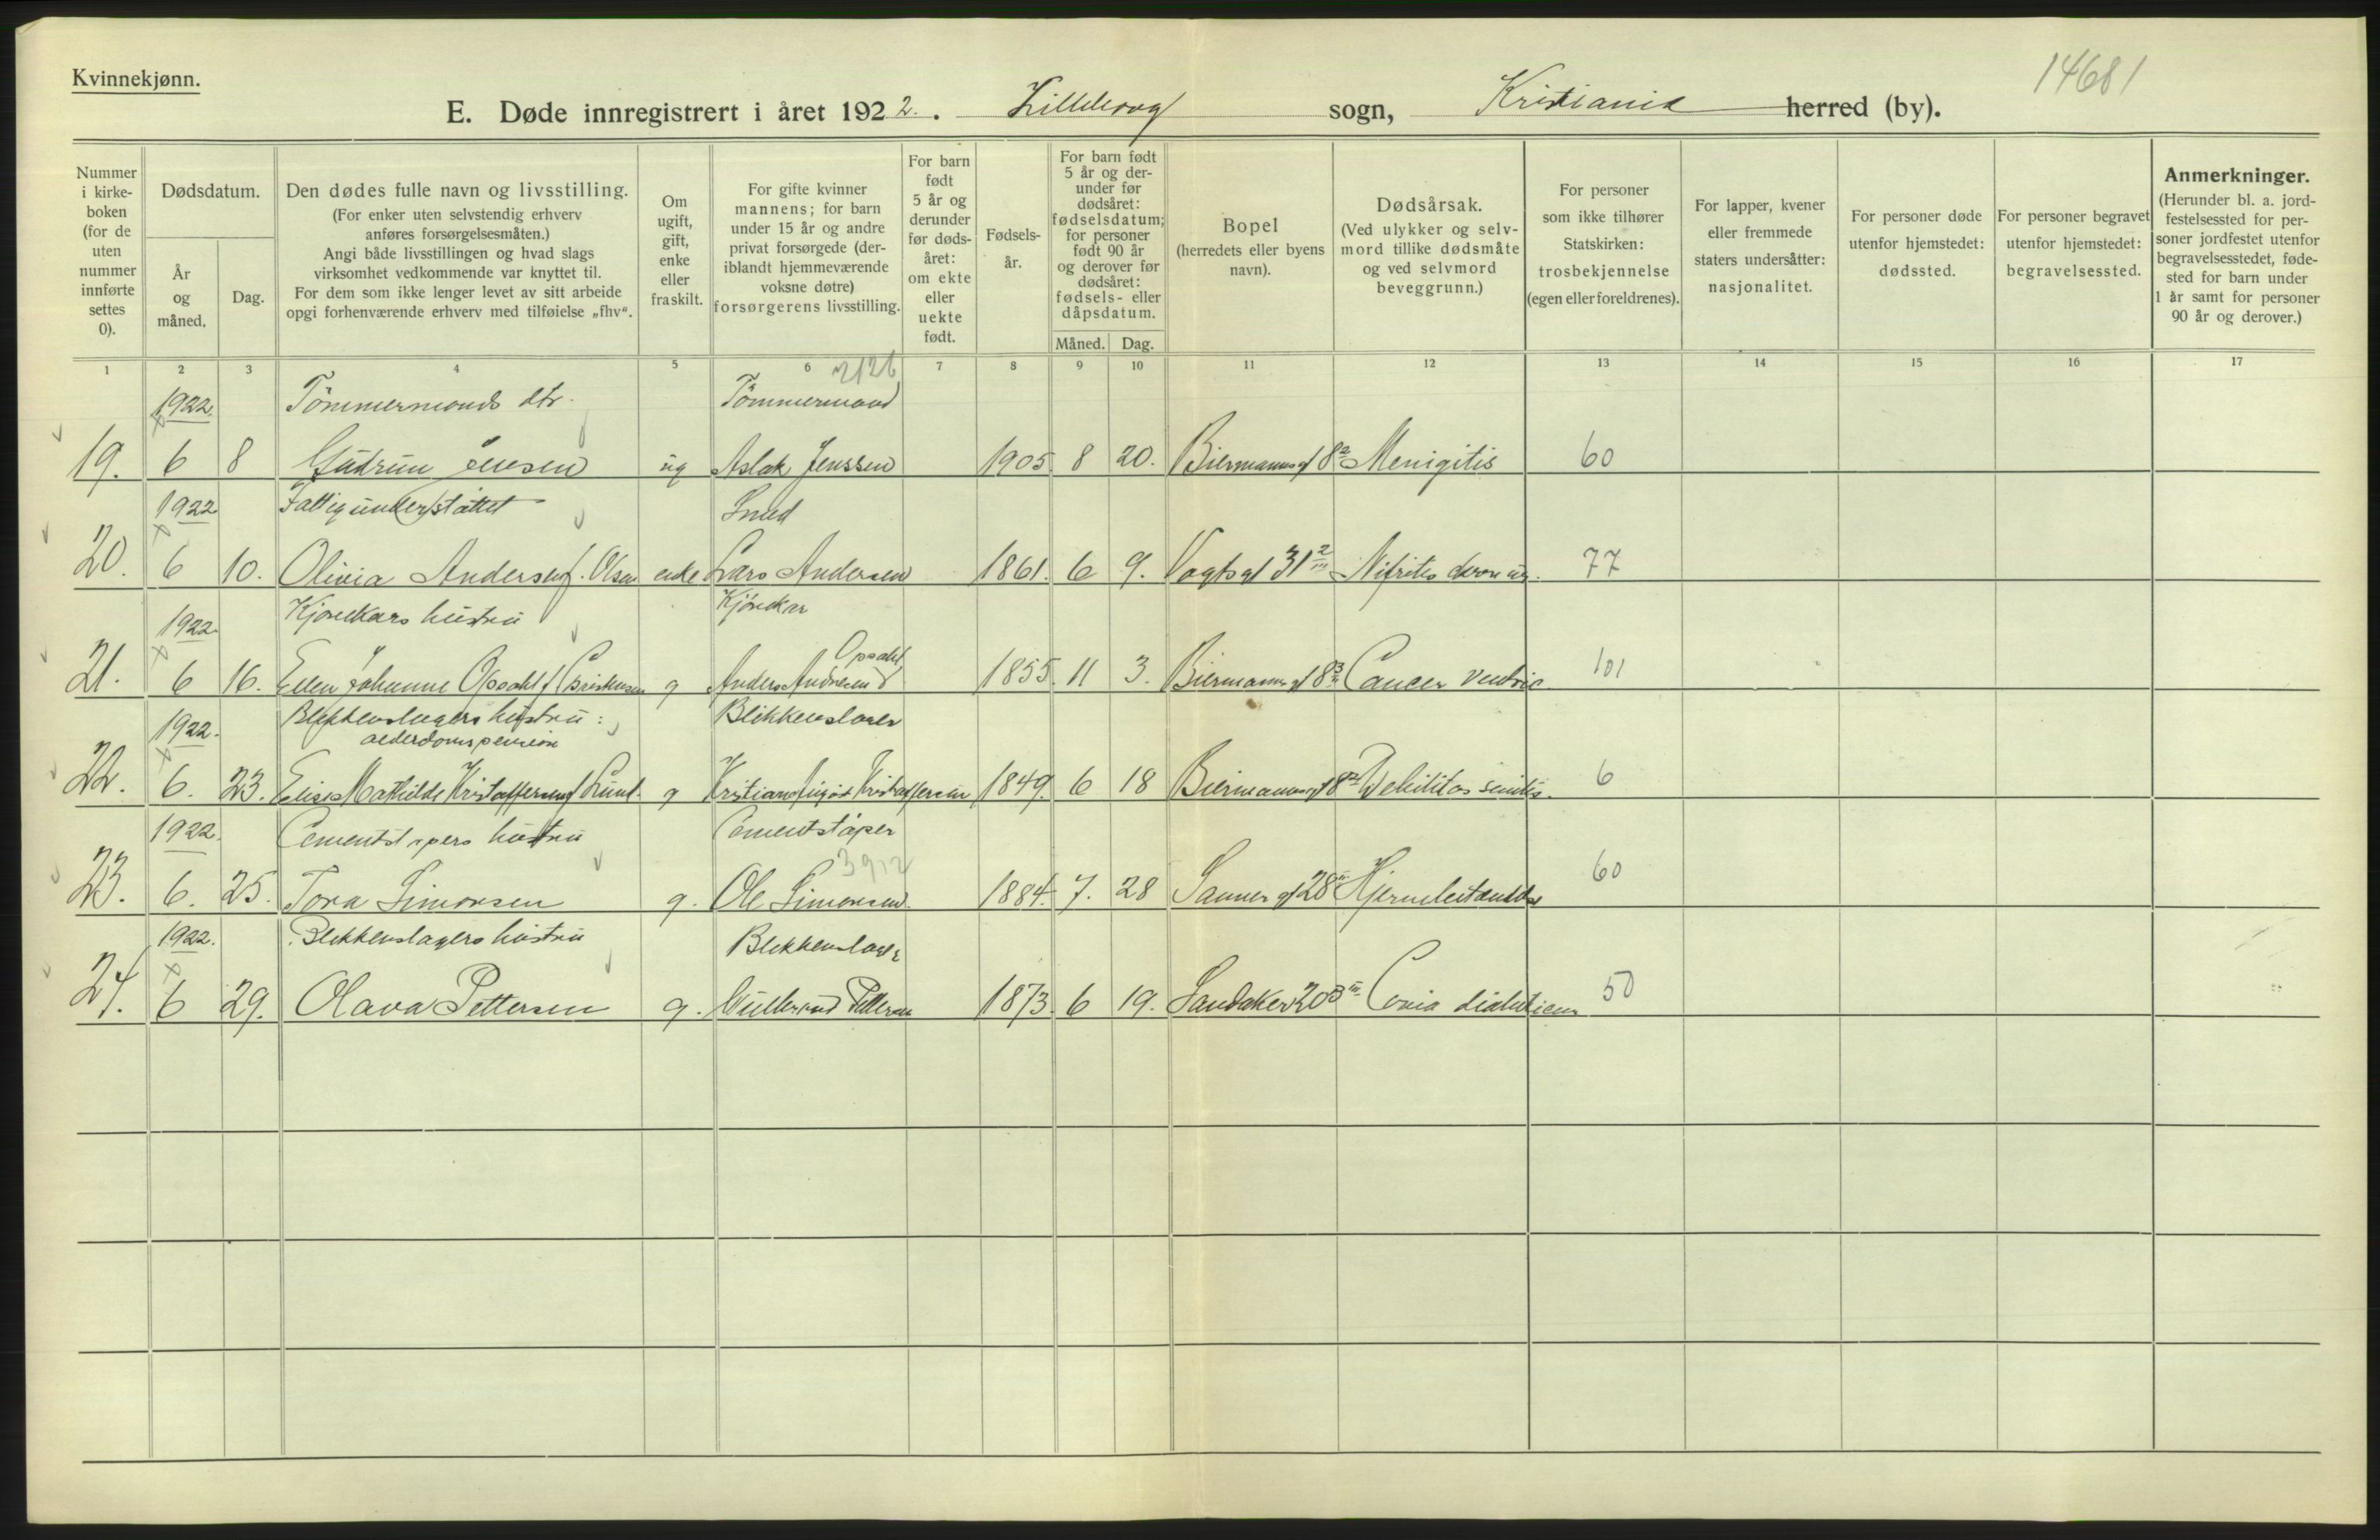 Kvinnekjønn.
14681
E. Døde innregistrert i året 1922. Lilleborg sogn, Kristiania herred (by).
Nummer i kirke-boken (for de uten nummer innførte settes 0).
Dødsdatum.
År og måned.
Dag.
Den dødes fulle navn og livsstilling.
(For enker uten selvstendig erhverv anføres forsørgelsesmåten.)
Angi både livsstillingen og hvad slags virksomhet vedkommende var knyttet til.
For dem som ikke lenger levet av sitt arbeide opgi forhenværende erhverv med tilføielse „fhv“.
Om ugift, gift, enke eller fraskilt.
For gifte kvinner mannens; for barn under 15 år og andre privat forsørgede (deriblandt hjemmeværende voksne døtre) forsørgerens livsstilling.
For barn født 5 år og derunder før dødsåret: om ekte eller uekte født.
Fødsels-år.
For barn født 5 år og derunder før dødsåret: fødselsdatum; for personer født 90 år og derover før dødsåret: fødsels- eller dåpsdatum.
Måned. Dag.
Bopel (herredets eller byens navn).
Dødsårsak.
(Ved ulykker og selvmord tillike dødsmåte og ved selvmord beveggrunn.)
For personer som ikke tilhører Statskirken: trosbekjennelse (egen eller foreldrenes).
For lapper, kvener eller fremmede staters undersåtter: nasjonalitet.
For personer døde utenfor hjemstedet: dødssted.
For personer begravet utenfor hjemstedet: begravelsessted.
Anmerkninger.
(Herunder bl. a. jordfestelsessted for personer jordfestet utenfor begravelsesstedet, fødested for barn under 1 år samt for personer 90 år og derover.)
1 2 3 4 5 6 7 8 9 10 11 12 13 14 15 16 17
2126
1922 Tömmermands dtr. Tömmermand
19. 6 8 Gudrun Jensen ug Aslak Jenssen 1905 8 20. Biermannsgt 8 Menigitis 60
1922 Fattigunderstöttet Smed
20. 6 10. Olivia Andersen f. Olsen enke Lars Andersen 1861. 6 9. Vogtsgt 31 Nifritis 77
1922 Kjörekars hustru Kjörekar
21. 6 16. Ellen Johanne Opsahl f Cristensen g Anders Andresen Opsahl 1855. 11 3. Biermannsgt 8 Cancer ventric. 101
1922. Blikkenslagers hustru: Blikkenslager
alderdomspension
22. 6. 23. Elise Mathilde Kristoffersen f Lund. g Kristian August Kristoffersen 1849. 6 18 Biermannsgt 8 Debilitas senilis. 6
1922. Cementstøpers hustru Cementstøper
3912
23. 6. 25. Tora Simonsen g. Ole Simonsen. 1884. 7. 28 Sannergt 28 60
1922. Blikkenslagers hustru Blikkenslager
24. 6 29. Olava Pettersen g. Gulbrand Pettersen 1873. 6 19. Sandakerv 20 Coma diabeticum 50